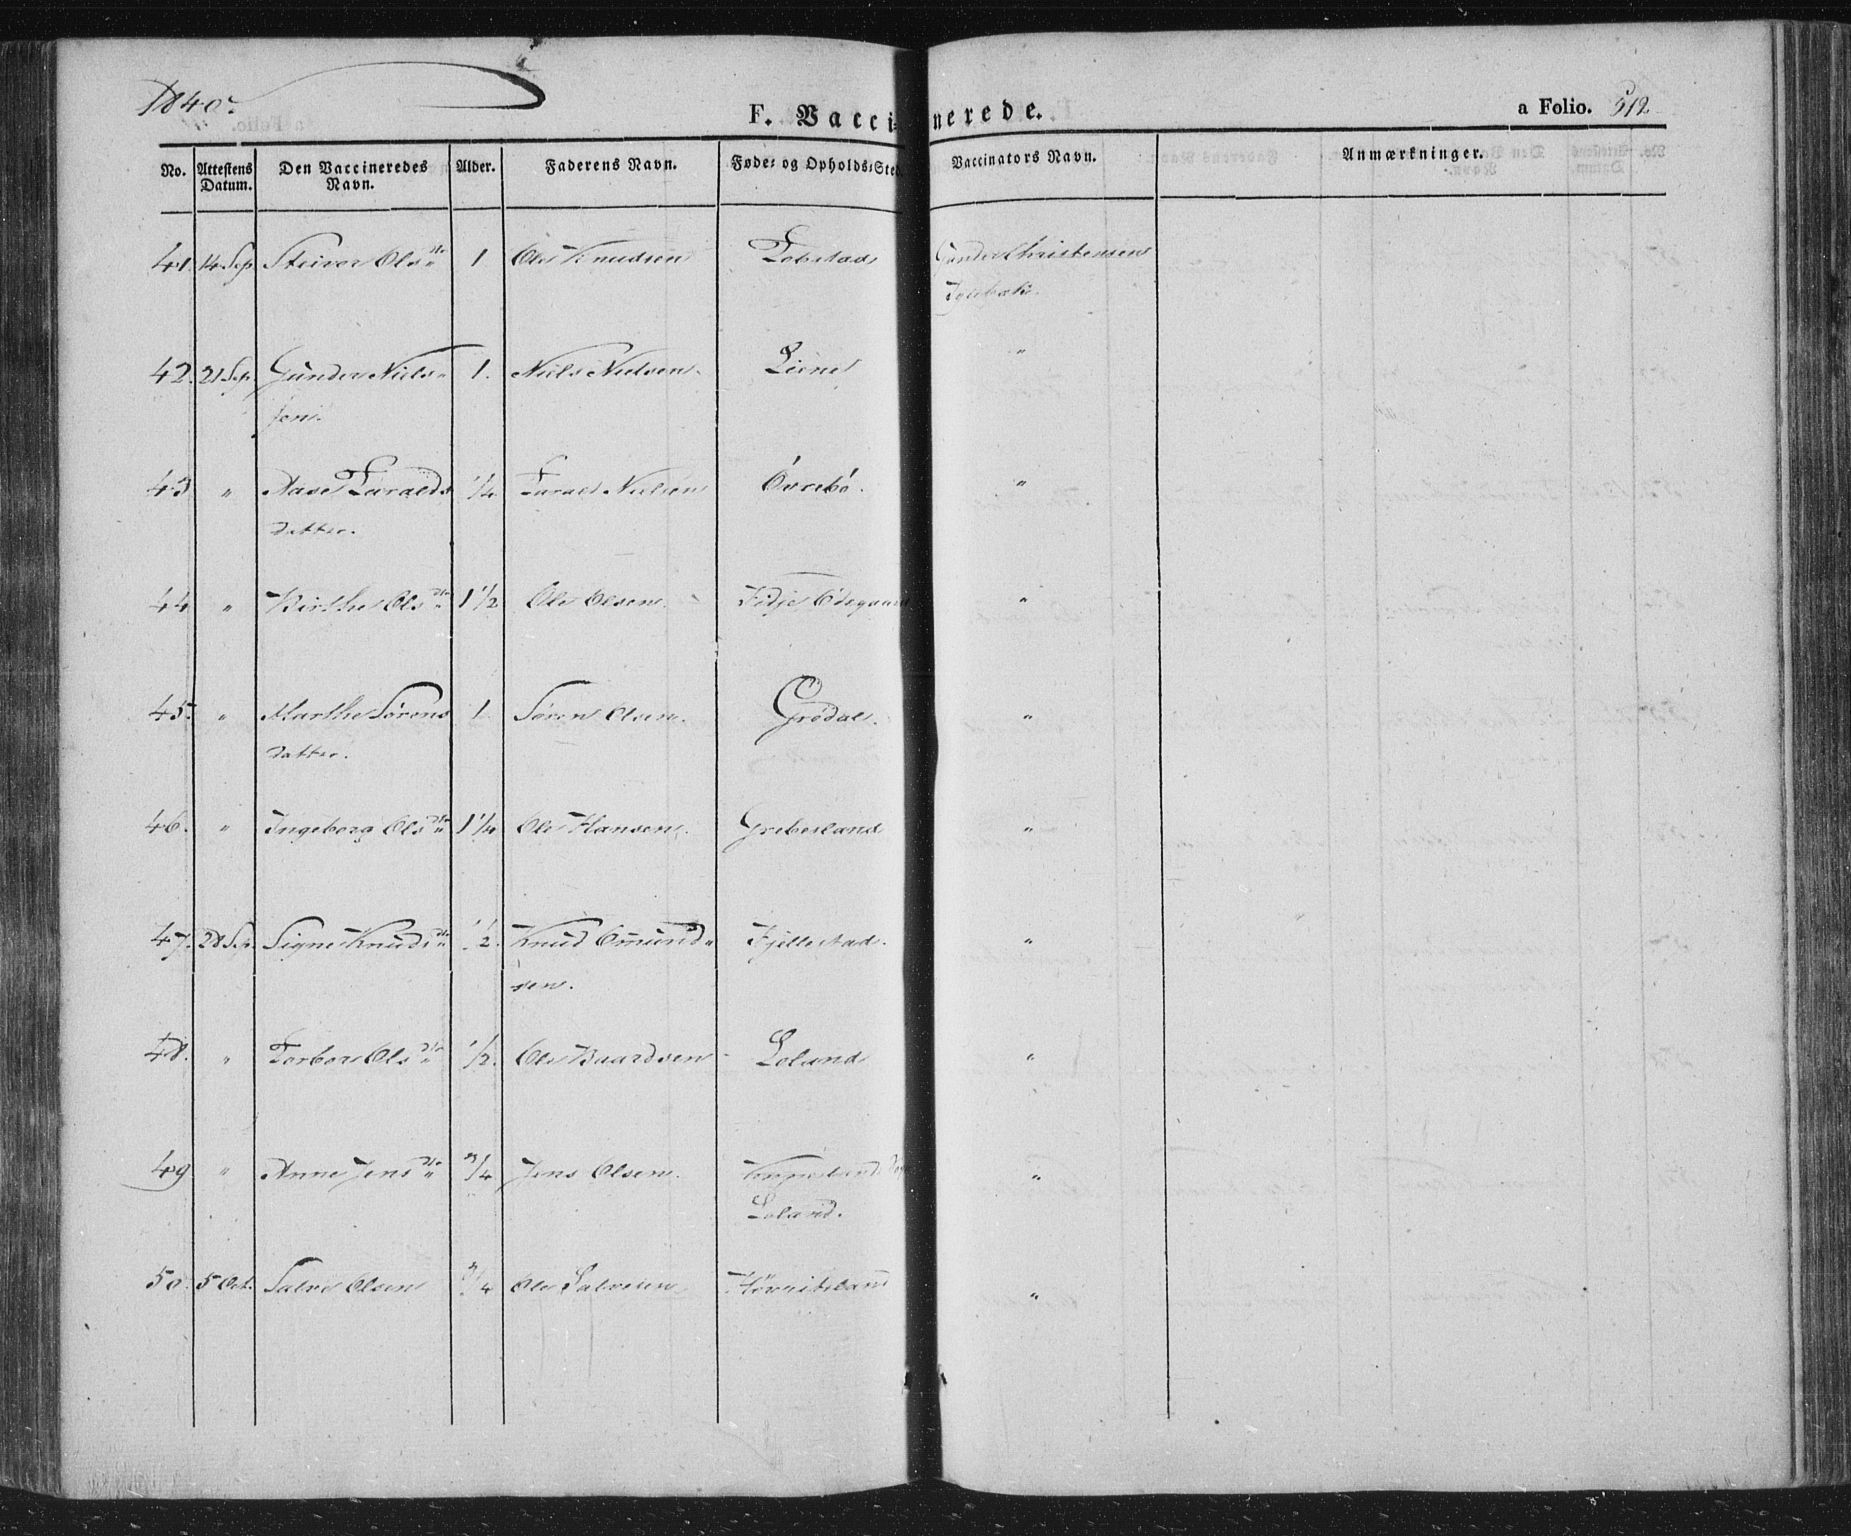 1840.
F. Vaccinerede.
a Folio. 512
No. Attestens Datum. Den Vaccineredes Navn. Alder. Faderens Navn. Føde- og Opholds-Sted. Vaccinators Navn. Anmærkninger.
41. 14 Sep. Steivor Olsdtr 1 Ole Knudsen Gunder Christensen
42. 21 Sep. Gunder Niels- 1. Niels Nielsen. Liene "
sen.
43 " Aase Taralds 1/4 Tarald Nielsen Øvrebø. "
datter.
44 " Birthe Olsdtr 1 1/2 Ole Olsen. Fidje Ødegaard "
45. " Marthe Sørens 1 Søren Olsen. Grødal. "
datter.
46. " Ingeborg Olsdtr 1 1/4 Ole Hansen. Grebesland "
47. 28 Sep. Signe Knudsdtr 1/2 Knud Omund- Fjellestad. "
sen.
48. " Torbor Olsdtr 1/2. Ole Baardsen Loland "
49 " Anne Jensdtr 3/4 Jens Olsen. "
Loland.
50. 5 Oct. Salve Olsen 3/4 Ole Salvesen "